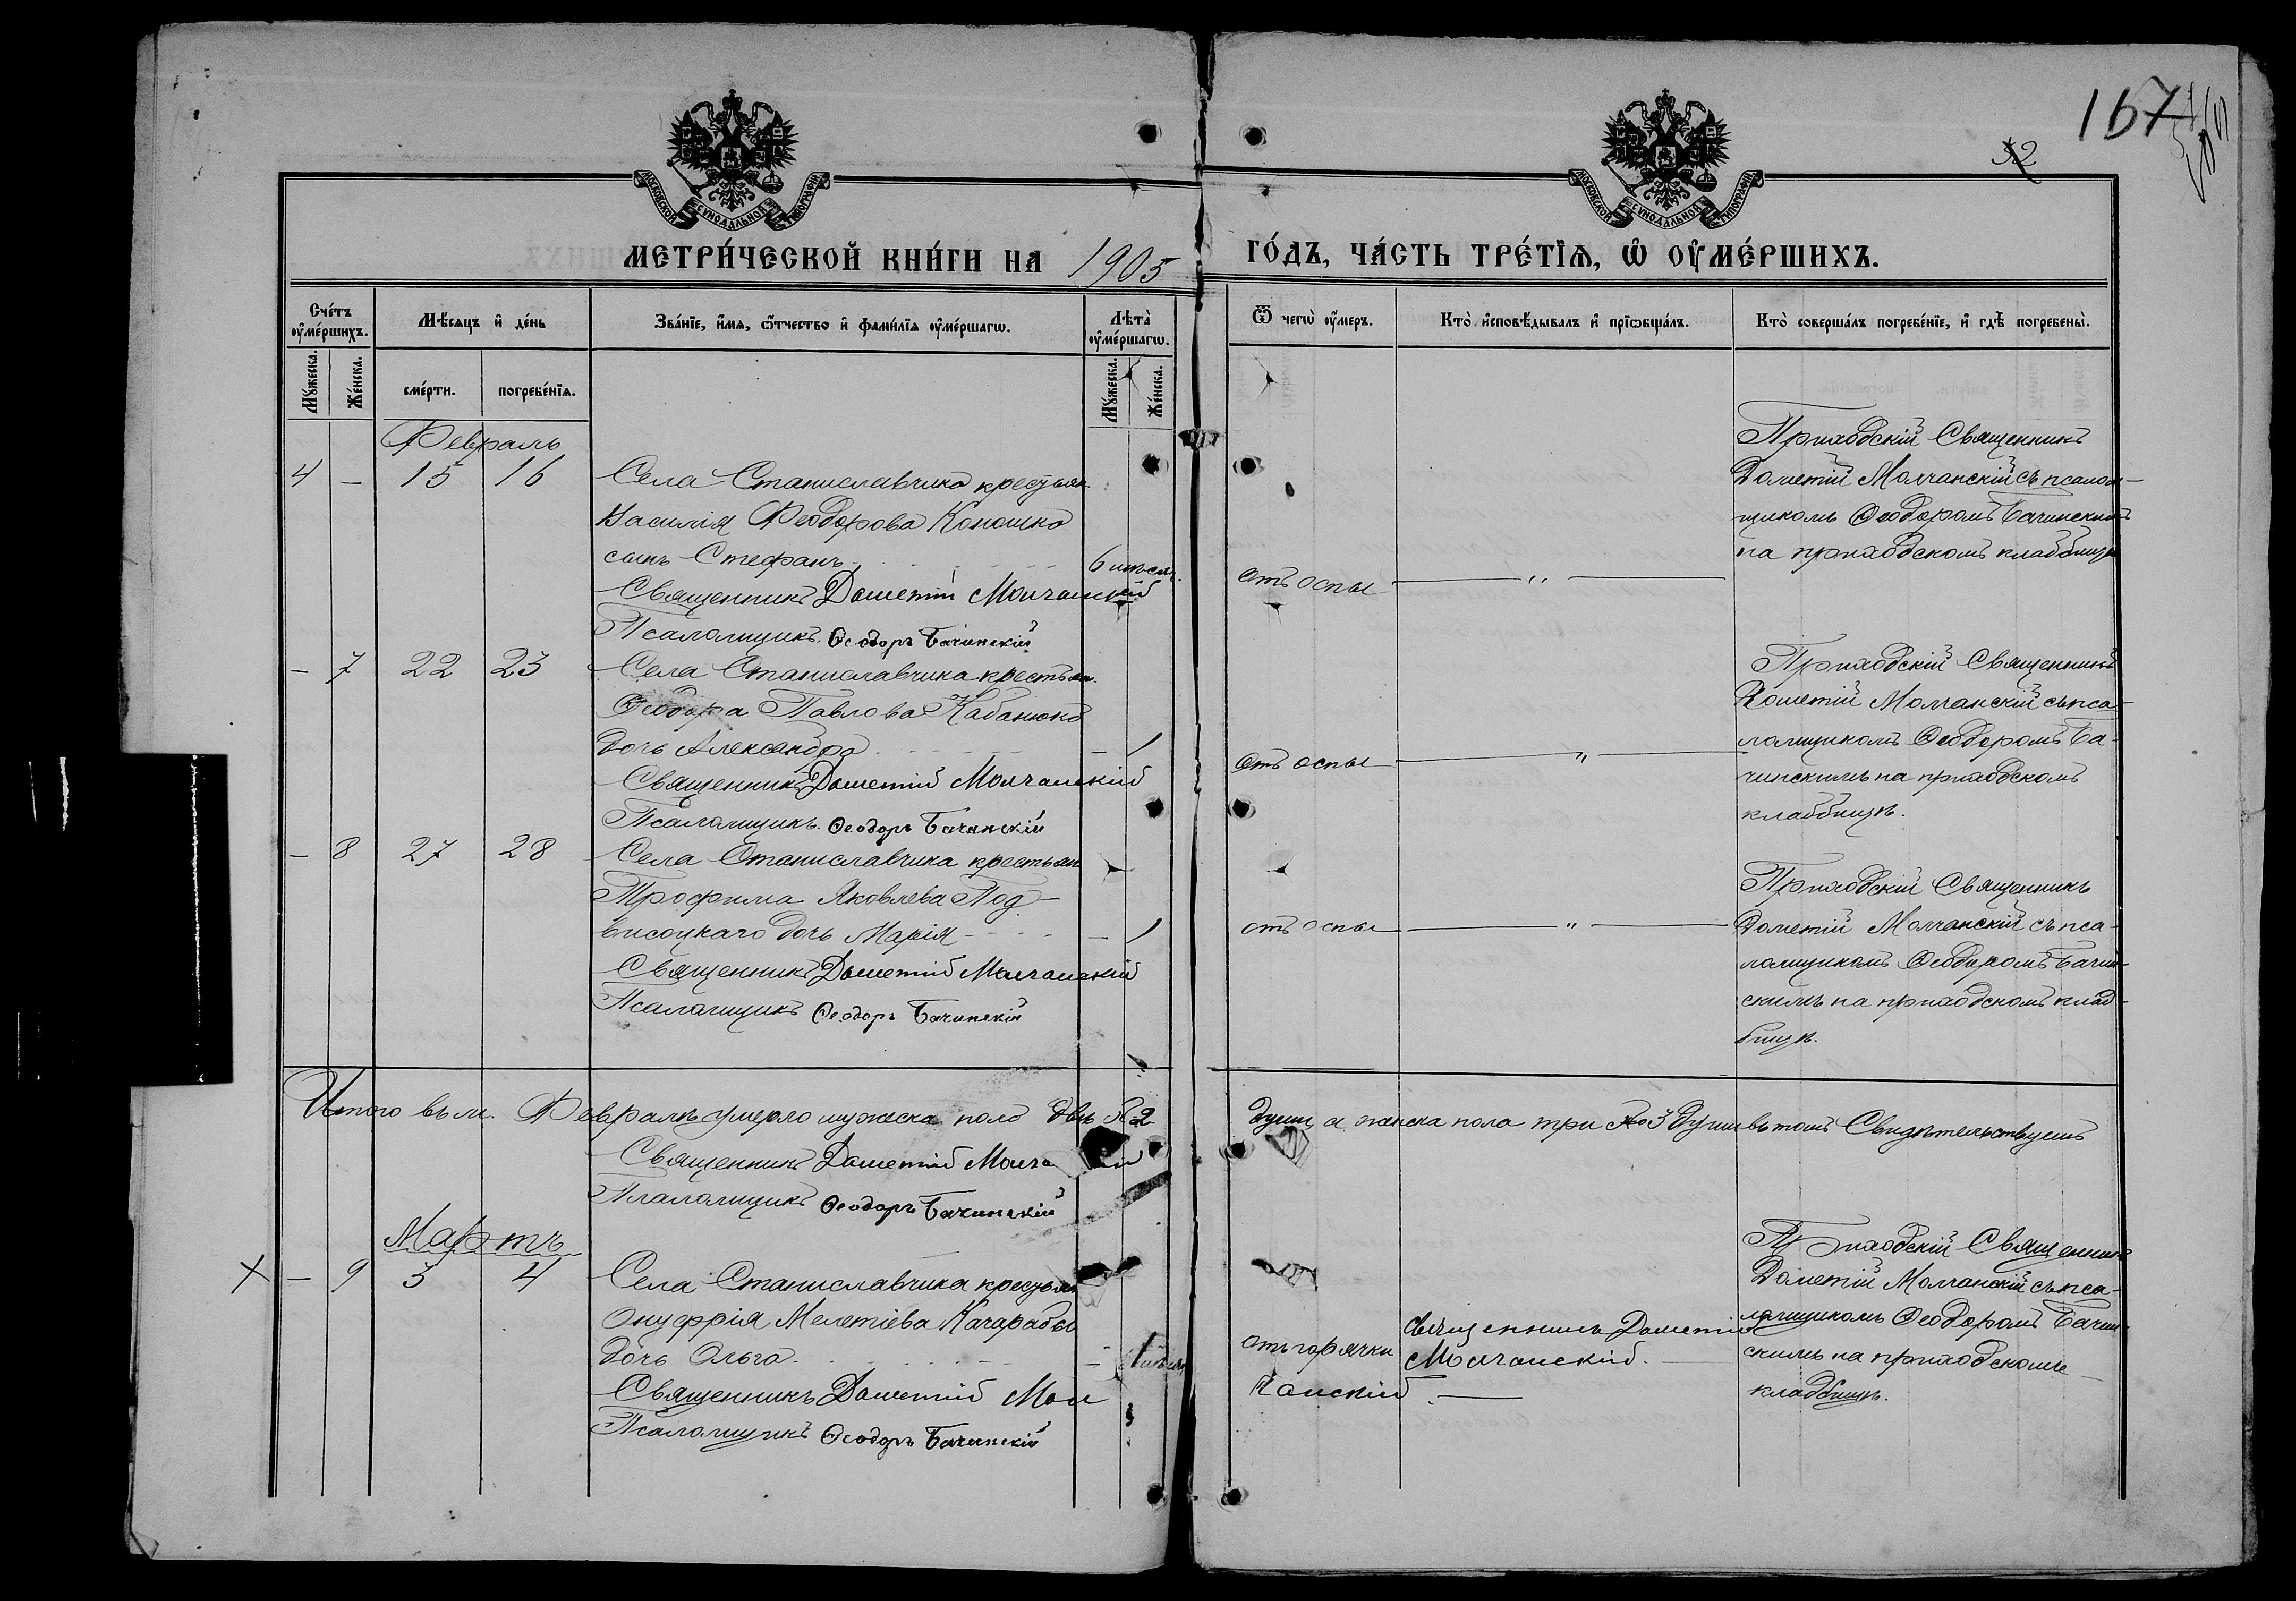 167
32
МОСКОВСКОЙ СѴНОДАЛЬНОЙ ТИПОГРАФІИ
МОСКОВСКОЙ СѴНОДАЛЬНОЙ ТИПОГРАФІИ
МЕТРИ́ЧЕСКОЙ КНИ́ГИ НА 1905 ГО́ДЪ, ЧА́СТЬ ТРЕ́ТІѦ, Ѡ҆ ОУ҆МЕ́РШИХЪ.
Сче́тъ оу҆ме́ршихъ.
Мѣ́сяцъ и҆ де́нь
Зва́нїе, и҆́мя, ѻ҆́тчество и҆ фами́лїя оу҆ме́ршагѡ.
Лѣта̀ оу҆ме́ршагѡ.
Ѿ чегѡ̀ оу҆́меръ.
Кто̀ и҆сповѣ́дывалъ и҆ прїѡбща́лъ.
Кто̀ соверша́лъ погребе́нїе, и҆ гдѣ̀ погребены̀.
Мꙋ́жеска. Же́нска.
сме́рти. погребе́нїя.
Мꙋ́жеска. Же́нска.
Февраль
4 — 15 16 Села Станиславчика крестьян.
Василія Феодорова Коношко
сынъ Стефанъ 6 мѣсяц.
Священникъ Дометій Молчанскій
Псаломщикъ Ѳеодоръ Бачинскій
отъ оспы — „ —
Приходскій Священникъ
Дометій Молчанскій съ псалом-
щикомъ Ѳеодоромъ Бачинскимъ
на приходскомъ кладбищѣ
— 7 22 23 Села Станиславчика крестьян.
Ѳеодора Павлова Кабанюка
дочь Александра — 1
Священникъ Дометій Молчанскій
Псаломщикъ Ѳеодоръ Бачинскій
отъ оспы — „ —
Приходскій Священникъ
Дометій Молчанскій съ пса-
ломщикомъ Ѳеодоромъ Ба-
чинскимъ на приходскомъ
кладбищѣ.
— 8 27 28 Села Станиславчика крестьян
Трофима Яковлева Под-
високаго дочь Марія — 1
Священникъ Дометій Молчанскій
Псаломщикъ Ѳеодоръ Бачинскій
отъ оспы — „ —
Приходскій Священникъ
Дометій Молчанскій съ пса-
ломщикомъ Ѳеодоромъ Бачин-
скимъ на приходскомъ клад-
бищѣ.
Итого въ м. Февралѣ умерло мужеска пола двѣ № 2 души, а женска пола три № 3 души въ томъ Свидѣтельствуемъ
Священникъ Дометій Молча
Псаломщикъ Ѳеодоръ Бачинскій
Мартъ
— 9 3 4 Села Станиславчика крестьян
Онуфрія Мелетіева
дочь Ольга —
Священникъ Дометій Мол
чанскій
Псаломщикъ Ѳеодоръ Бачинскій
отъ горячки
Священникъ Дометій
Молчанскій.
Приходскій Священникъ
Дометій Молчанскій съ пса-
ломщикомъ Ѳеодоромъ Бачин-
скимъ на приходскомъ
кладбищѣ.